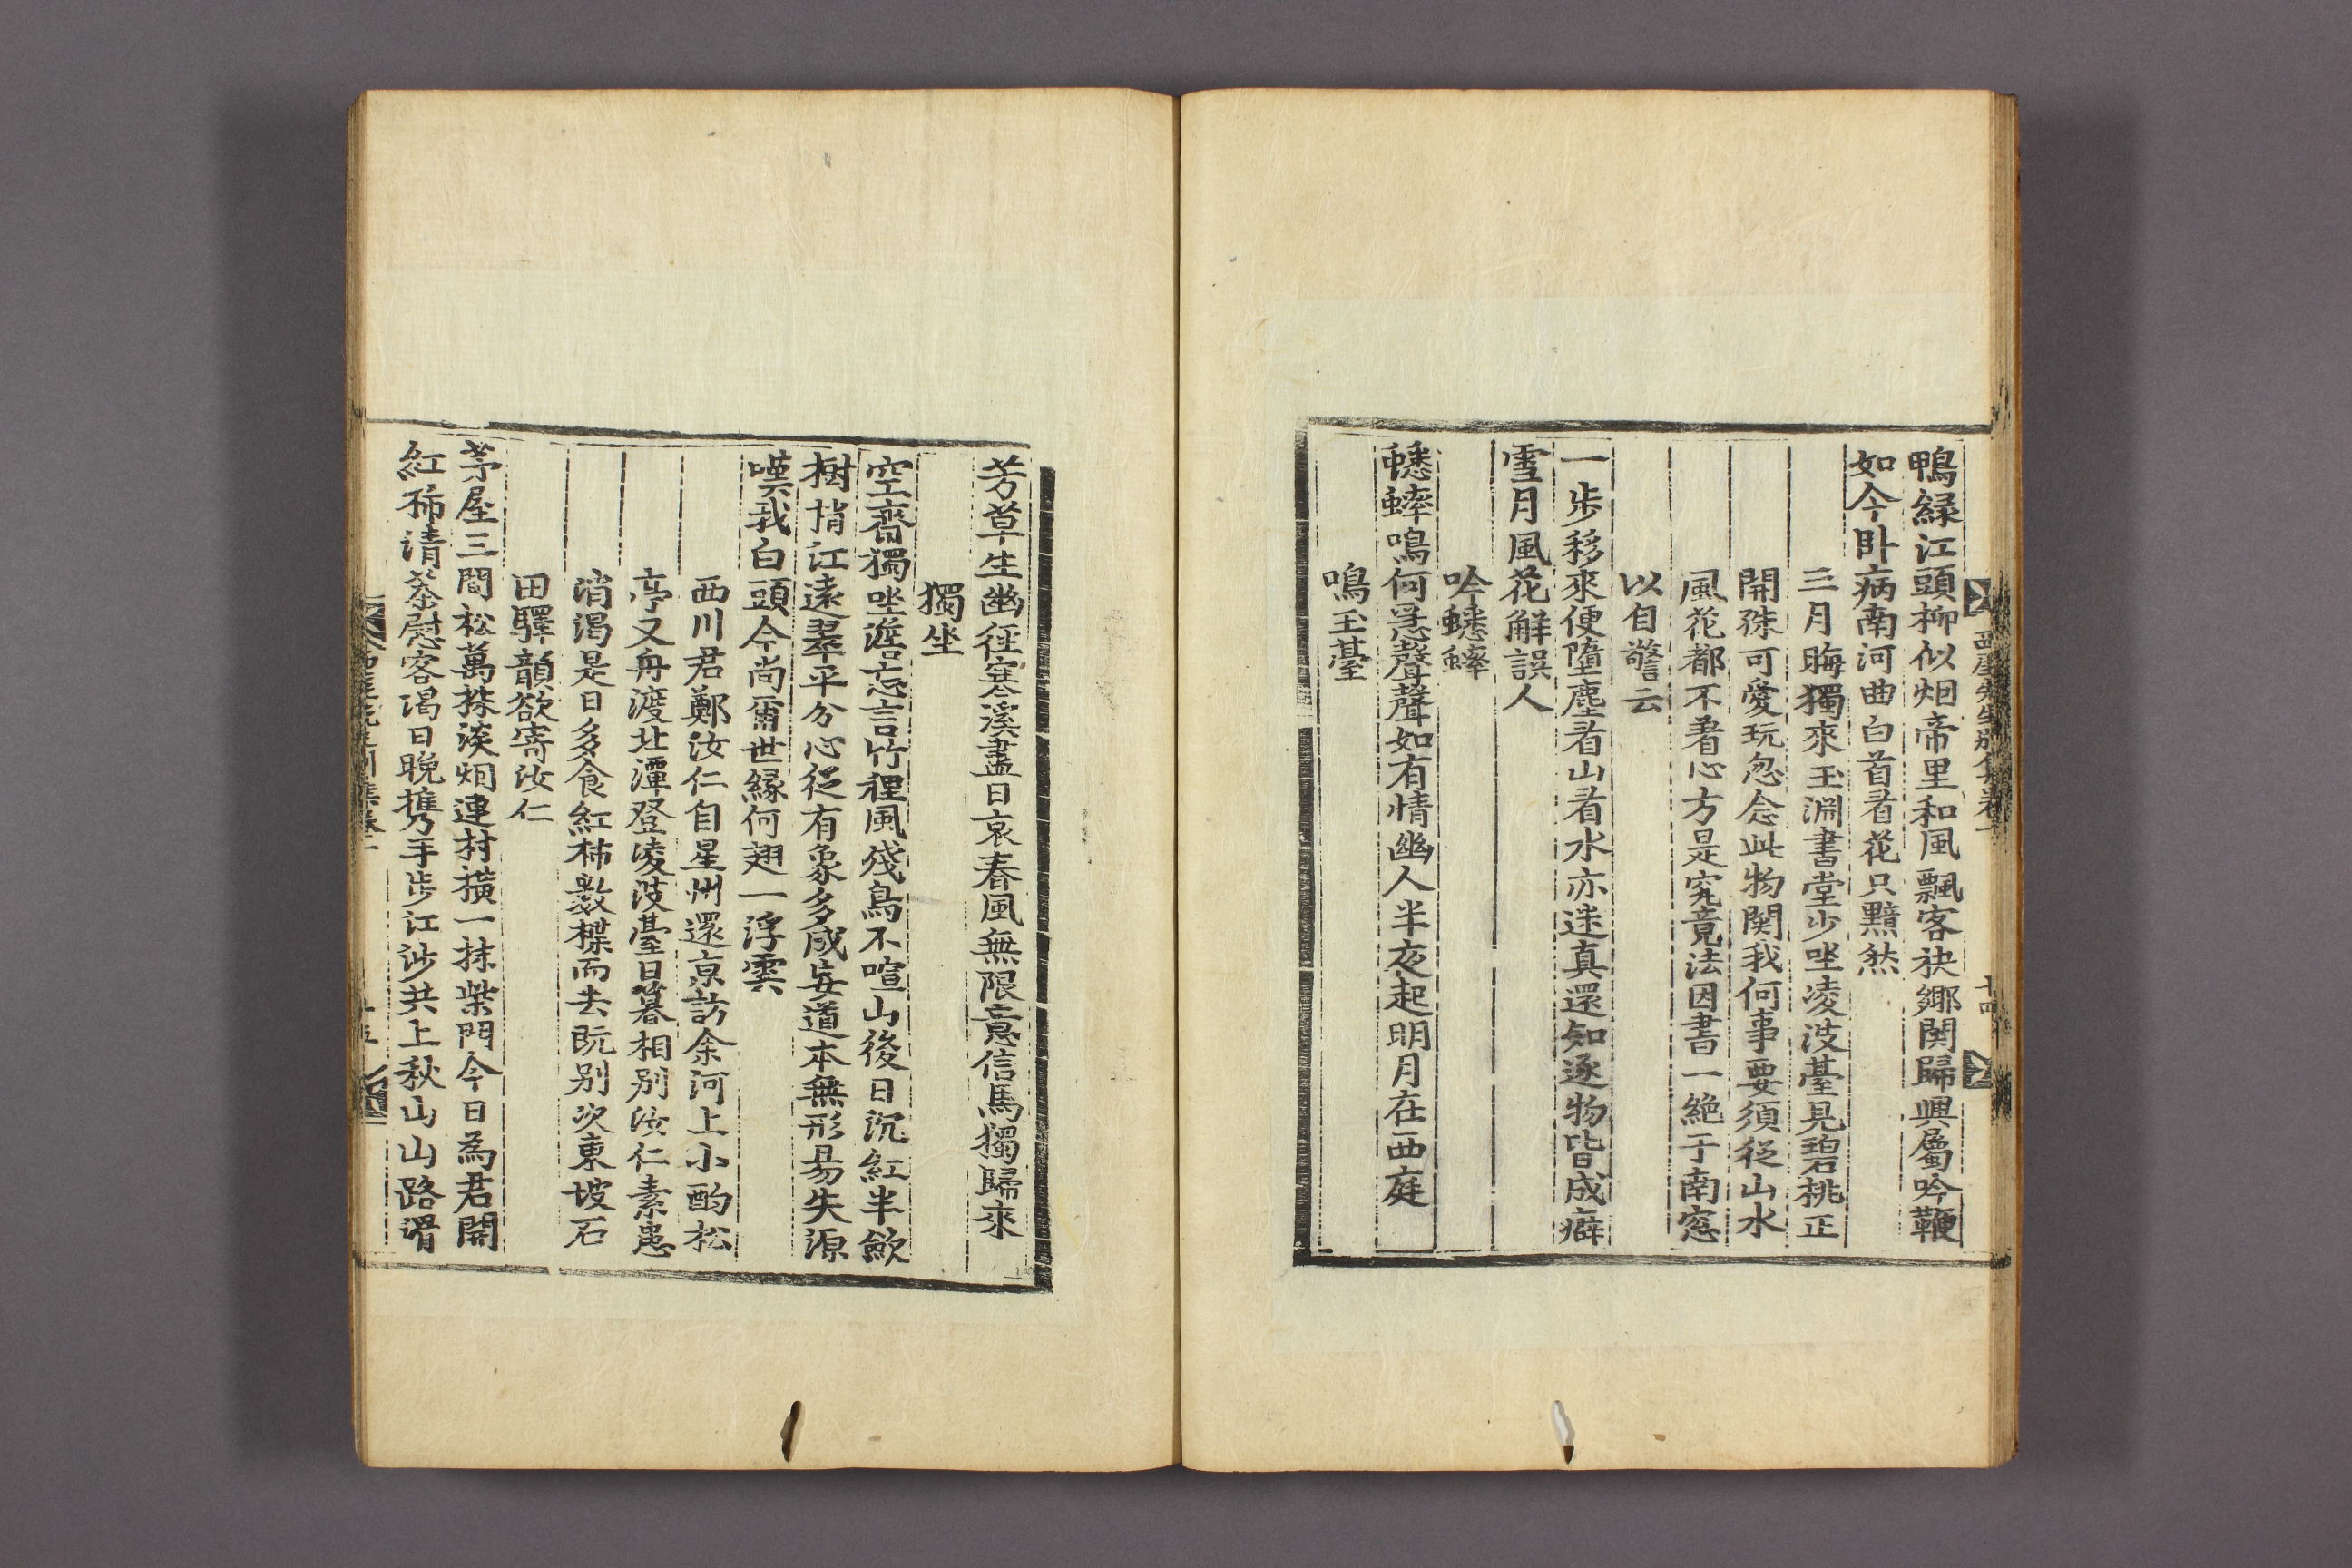 西厓先生別集卷一
十四
鴨緑江頭柳似烟帝里和風飄客袂鄉関歸興屬吟鞭
如今卧病南河曲白首看花只黯然
三月晦獨來玉淵書堂少坐凌波臺見碧桃正
開殊可愛玩忽念此物関我何事要須從山水
風花都不着心方是究竟法因書一絶于南窓
以自警云
一步移來便墮塵看山看水亦迷真還知逐物皆成癖
雪月風花解誤人
吟蟋蟀
蟋蟀鳴何急聲聲如有情幽人半夜起明月在西庭
鳴玉臺
芳草生幽徑寒溪盡日哀春風無限意信馬獨歸來
獨坐
空齋獨坐澹忘言竹裡風殘鳥不喧山後日沉紅半歛
樹梢江遠翠平分心從有象多成妄道本無形易失源
嘆我白頭今尚爾世緣何翅一浮雲
西川君鄭汝仁自星州還京訪余河上小酌松
亭又舟渡北潭登凌波臺日暮相別汝仁素患
消渴是日多食紅柿數楪而去旣别次東坡石
田驛韻欲寄汝仁
茅屋三間松萬株淡烟連村横一抹柴門今日為君開
紅柿清茶慰客渴日晩携手步江沙共上秋山山路滑